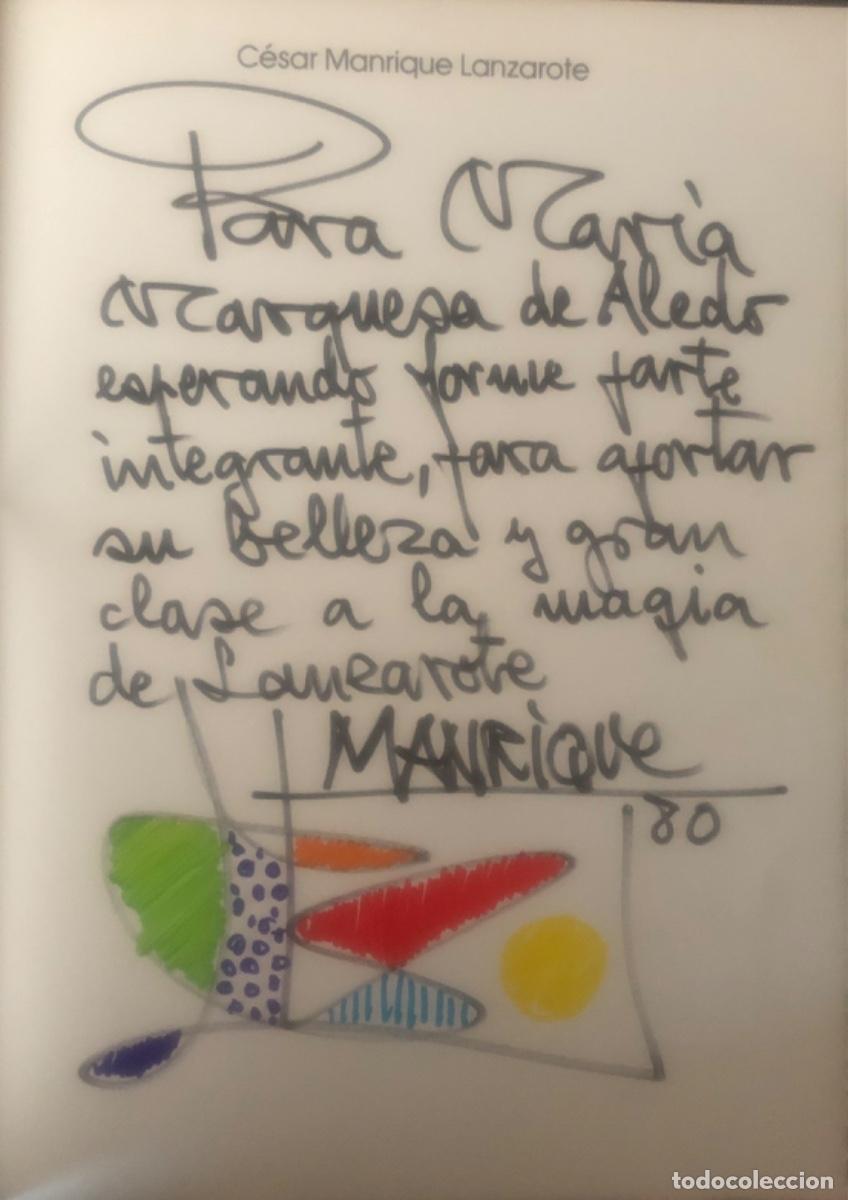 César Manrique Lanzarote
Para María
Marquesa de Aledo
esperando forme parte
integrante, para aportar
su belleza y gran
clase a la magia
de Lanzarote
MANRiQUE
80
todocoleccion